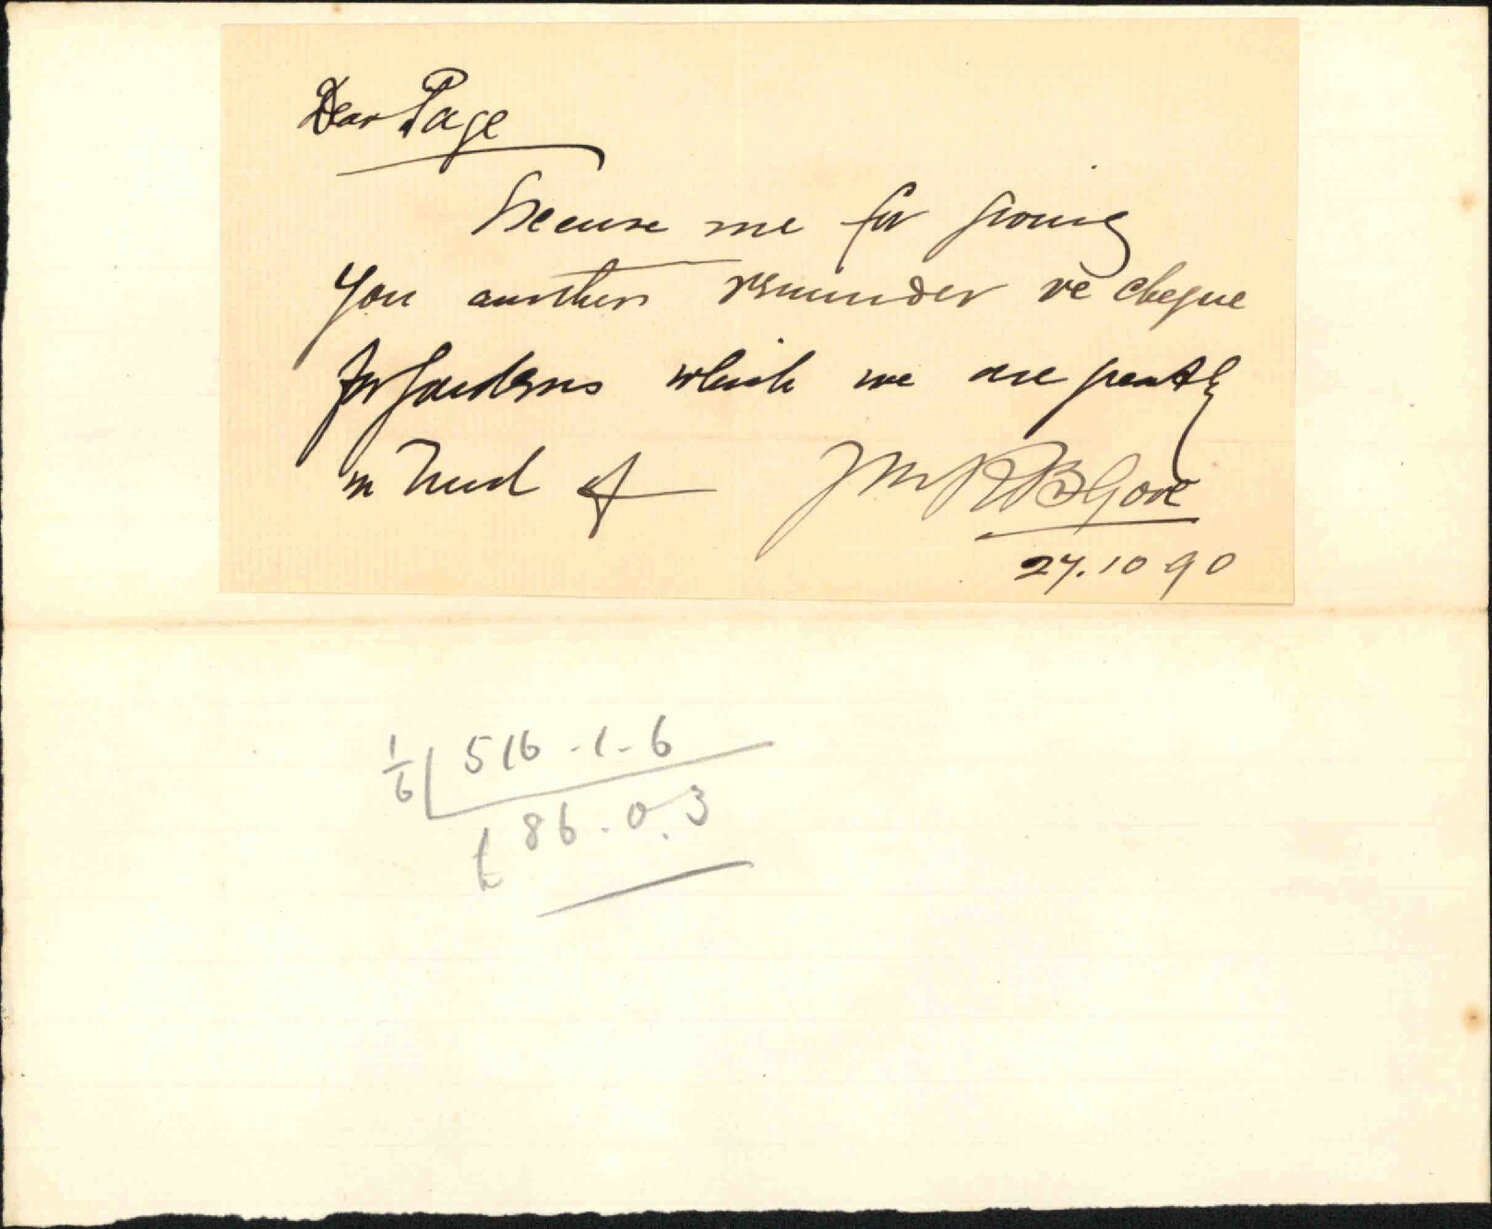 Dear Page
Excuse me for giving
you another reminder re cheque
for Gardens which we are greatly
in need of
R B Gore
27.10 90
1/6 516-1-6
£ 86.0.3